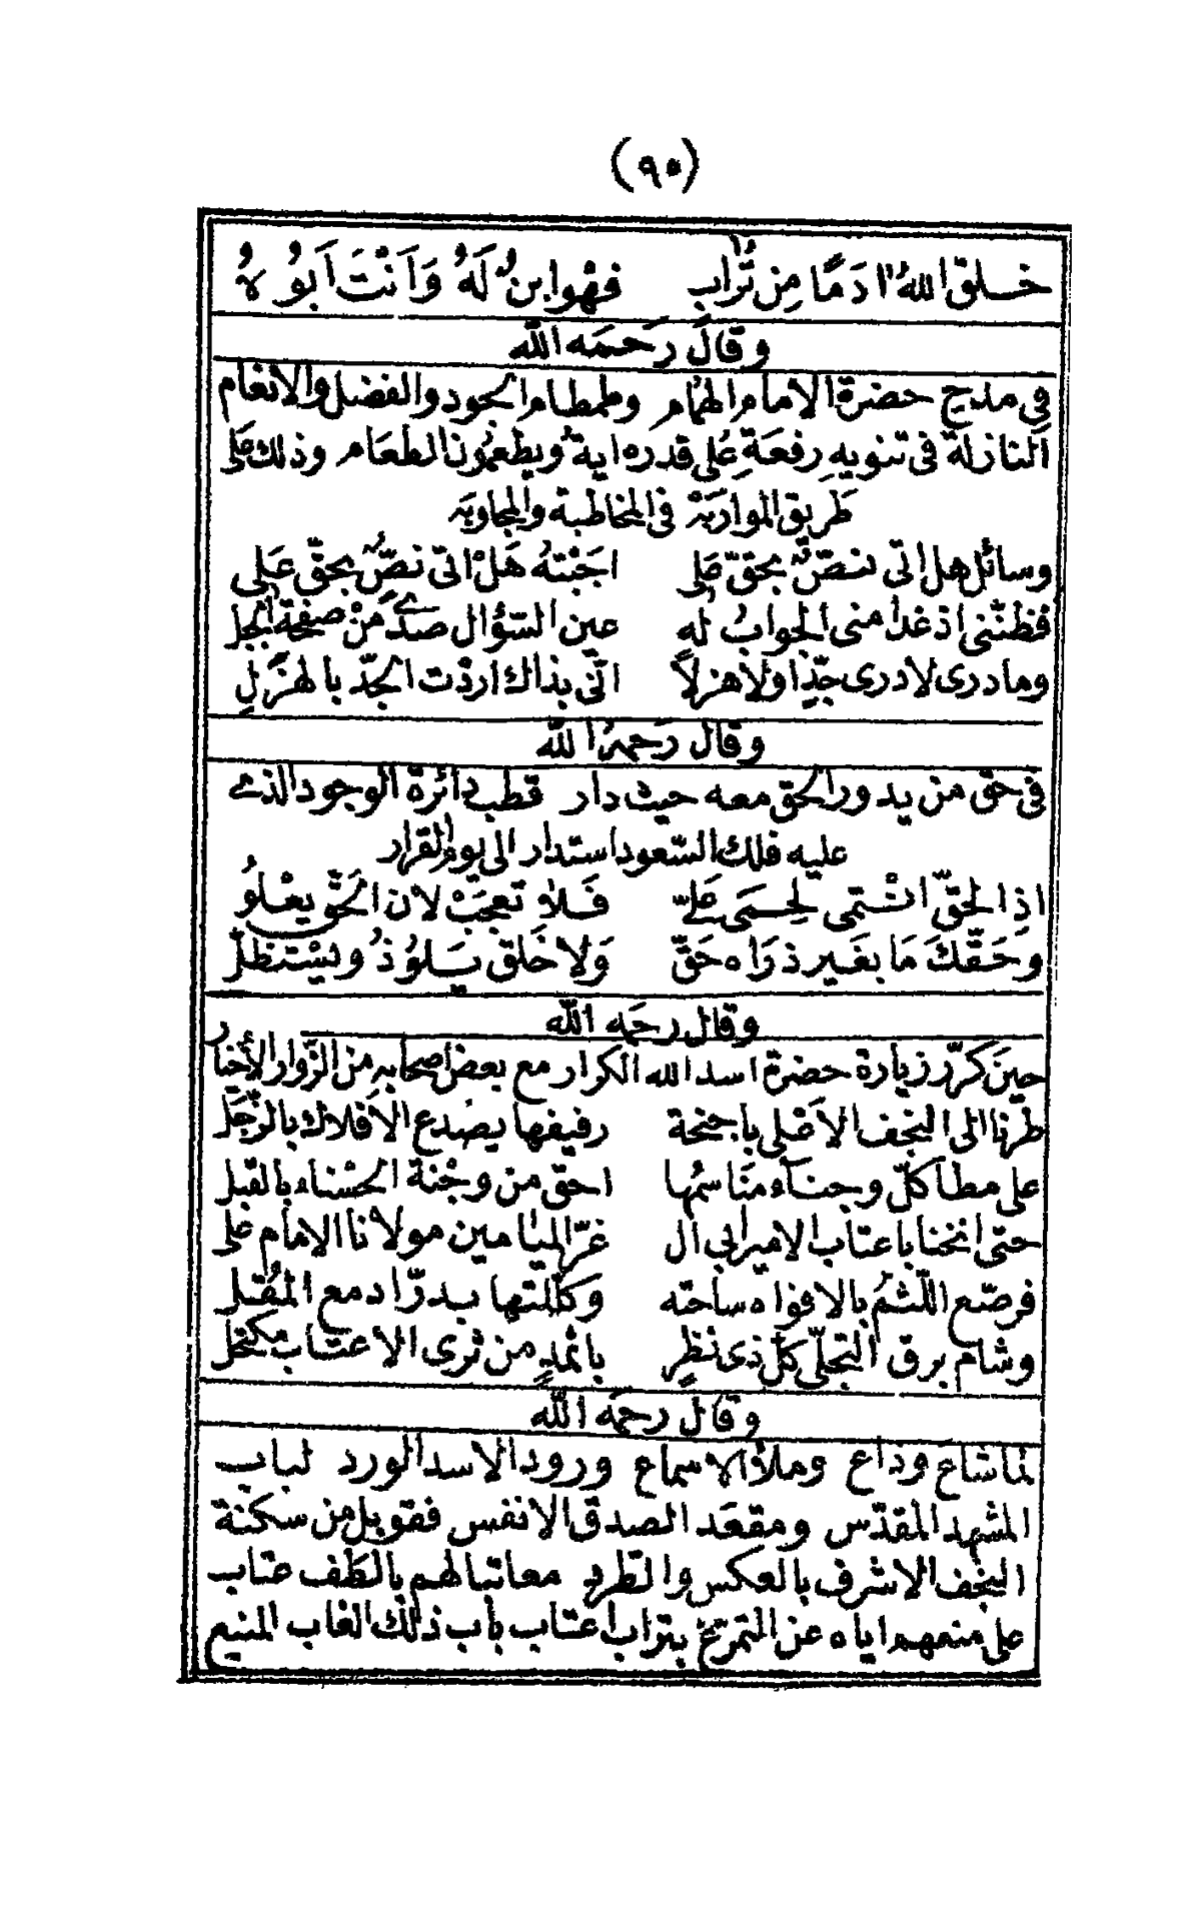 (٩٥)
خلق الله اٰدَمًا مِن تُرابٍ فهْوا بنٌ لَهُ وَاَنْتَ اَبُوُهُ
وقال رَحمَه الله
فى مديح حضرة الامام الهُمام وطمطام الجود والفضل والانعام
النازلة فى تنويهِ رفعَةِ عُلى قدره اية ويطعمُون الطعَام وذلك على
طَريق الموارَبَة فى المخاطبة والمجاوبَة
وسائلٍ هل اتى نصٌّ بحقّ عَلى اجَبْتهُ هَلْ اتى نصٌّ بحقّ عَلى
فظنّنى اذ غدا منى الجوابُ له عين السّؤال صدىً مِنْ صفحة الجبل
ومادرى لا درى جدّا ولا هزلاً انّى بذاك اردْت الجدّ بالهزَلِ
وقال رَحمهُ الله
فى حقّ من يدور الحق معه حيث دار قطب دائرة الوجود الذى
عليه فلك السّعود استدار الى يوم القرار
اذِ الحقّ انْتمى لِحِمَى عَلىّ فَلا تعجَبْ لان الحَقّ يعْلوُ
وحَقّكَ مَا بغَير ذرَاه حَقّ وَلا خَلق يَلوُذُ ويسْتظلّ
وقال رحمَه الله
حينَ كرّر زيارة حضرة اسد الله الكرار مع بعض اصحابه مِن الزّوار الأخيار
طرنا الى النجف الاعْلى باجنحة رفيفها يصْدع الافلاك بالزّجَل
على مطا كلّ وجنآء مَنَاسمُها احقّ من وجْنة الحسْناء بالقبَل
حتى انخنا باعتاب الامير ابي ال غرّ الميَامين مولانا الامام على
فرصّع اللّثمُ بالافواه ساحته وكلّلتها بدرّ ادمع المُقَل
وشام برق التجلّى كلّ ذى نظرٍ باثمدٍ من ثرى الاعتاب مكتحل
وقال رحمَه الله
لما شاعَ وذاع وملأ الاسماع ورود الاسد الورد لباب
المشهد المقدّس ومقعَد الصدق الانفس فقوبل من سكنة
النجف الاشرف بالعكس والطرد معاتبا لهم بالطف عتاب
على منعهم اياه عن التمرّغ بتراب اعتاب باب ذلك الغاب المنيع